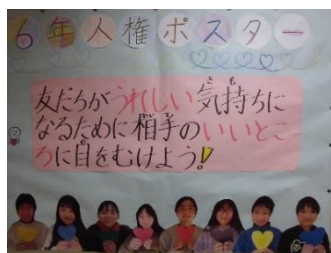 6年人権ポスター
友だちがうれしい気持ちに
なるために相手のいいとこ
ろに目をむけよう!